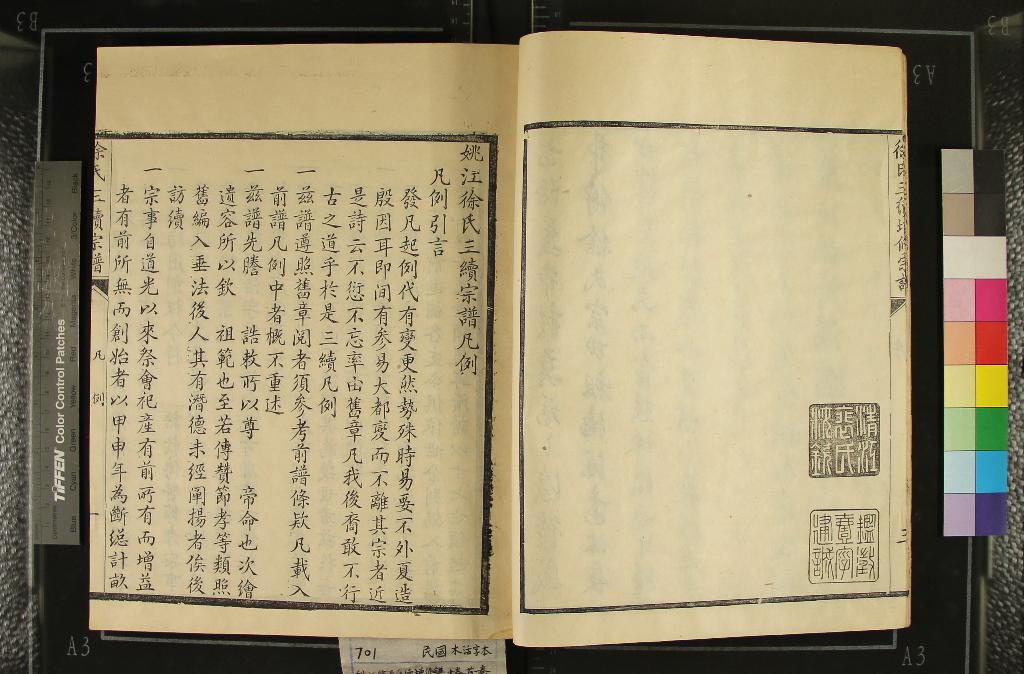 徐氏三續增修宗譜
三
姚江徐氏三續宗譜凡例
凡例引言
發凡起例代有變更然勢殊時易要不外夏造
殷因耳即間有參易大都變而不離其宗者近
是詩云不愆不忘率由舊章凡我後裔敢不行
古之道乎於是三續凡例
一茲譜遵照舊章閱者須參考前譜條欵凡載入
前譜凡例中者概不重述
一茲譜先謄 誥敕所以尊 帝命也次繪
遺容所以欽 祖範也至若傳贊節孝等類照
舊編入垂法後人其有潛德未經闡揚者俟後
訪續
一宗事自道光以來祭會祀產有前所有而增益
者有前所無而創始者以甲申年為斷總計畝
徐氏三續宗譜
凡例
一
701 民國木活字本
TIFFEN Color Control Patches
Blue Cyan Green Yellow Red Magenta White 3/Color Black
A3
A3
A3
B3
B3